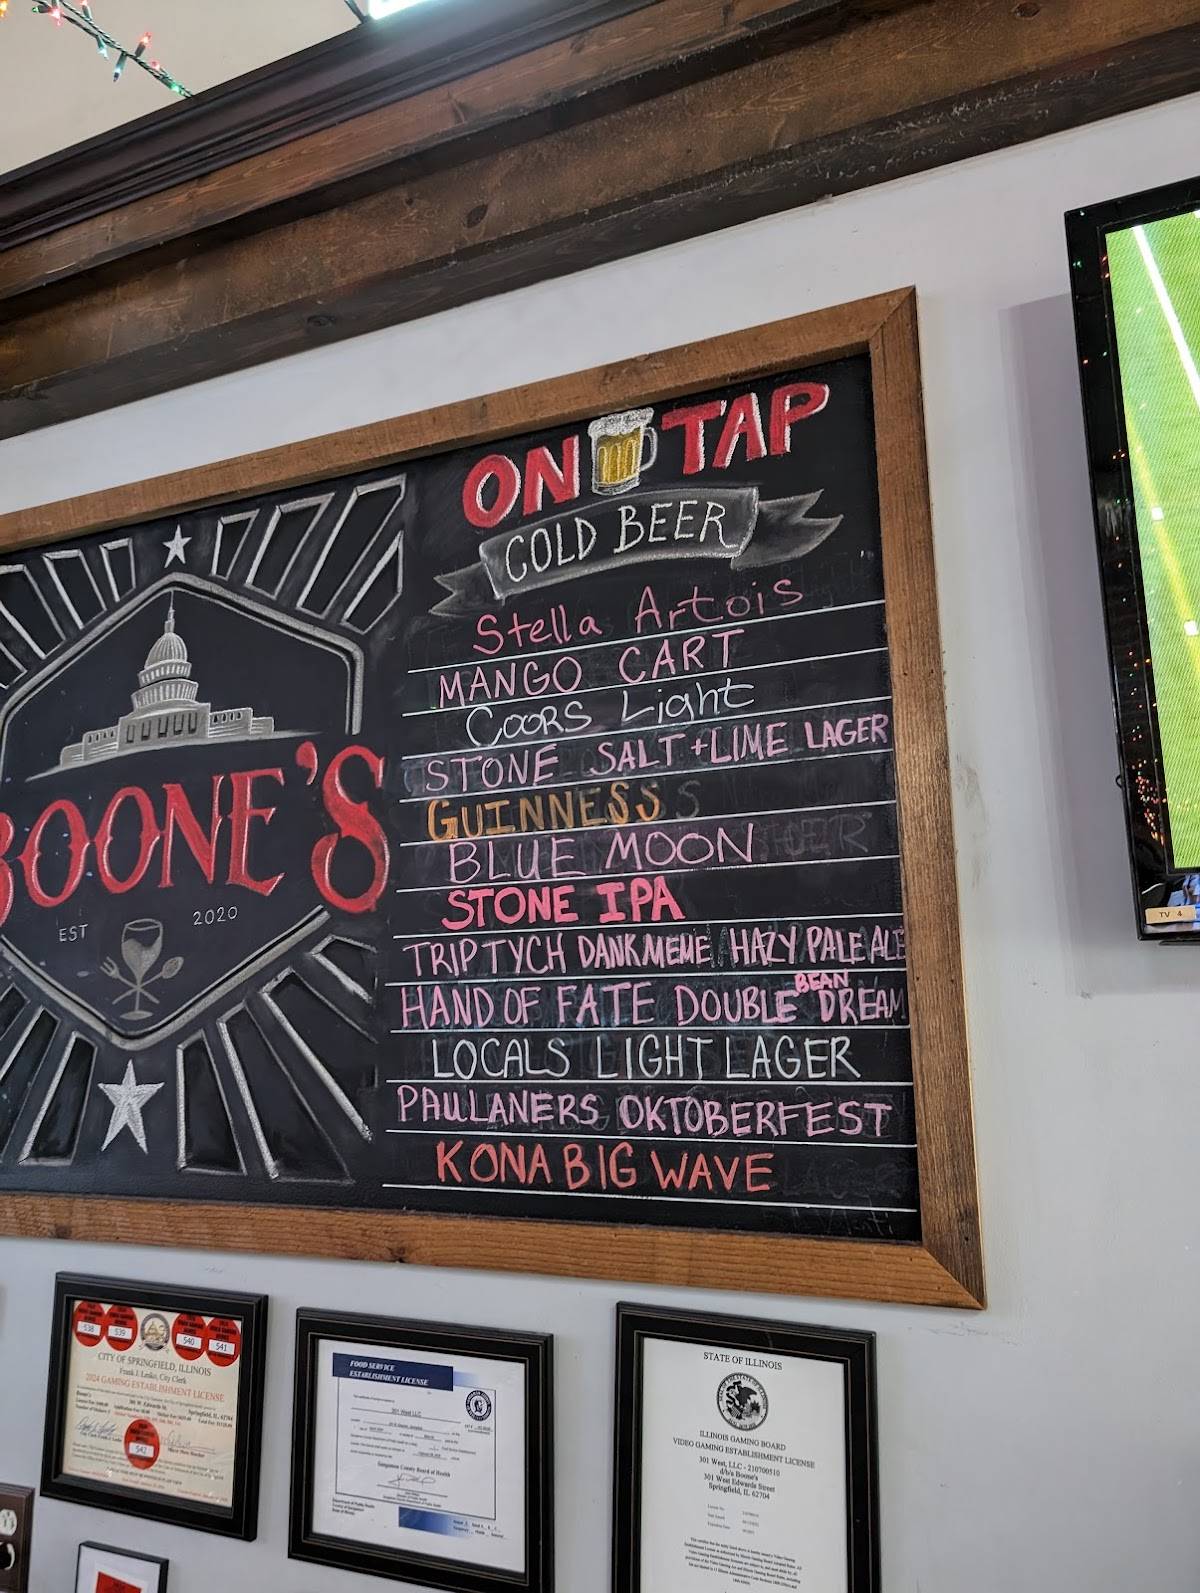 ON TAP
COLD BEER
Stella Artois
MANGO CART
Coors Light
STONE SALT + LIME LAGER
GUINNESS
BLUE MOON
STONE IPA
TRIPTYCH DANK MEME HAZY PALE ALE
BEAN
HAND OF FATE DOUBLE DREAM
LOCALS LIGHT LAGER
PAULANERS OKTOBERFEST
KONA BIG WAVE
BOONE'S
EST 2020
TV 4
538 539 540 541
CITY OF SPRINGFIELD, ILLINOIS
Frank J. Lesko, City Clerk
2024 GAMING ESTABLISHMENT LICENSE
542
FOOD SERVICE
ESTABLISHMENT LICENSE
301 West LLC
Sangamon County Board of Health
STATE OF ILLINOIS
ILLINOIS GAMING BOARD
VIDEO GAMING ESTABLISHMENT LICENSE
301 West, LLC - 210700510
d/b/a Boone's
301 West Edwards Street
Springfield, IL 62704